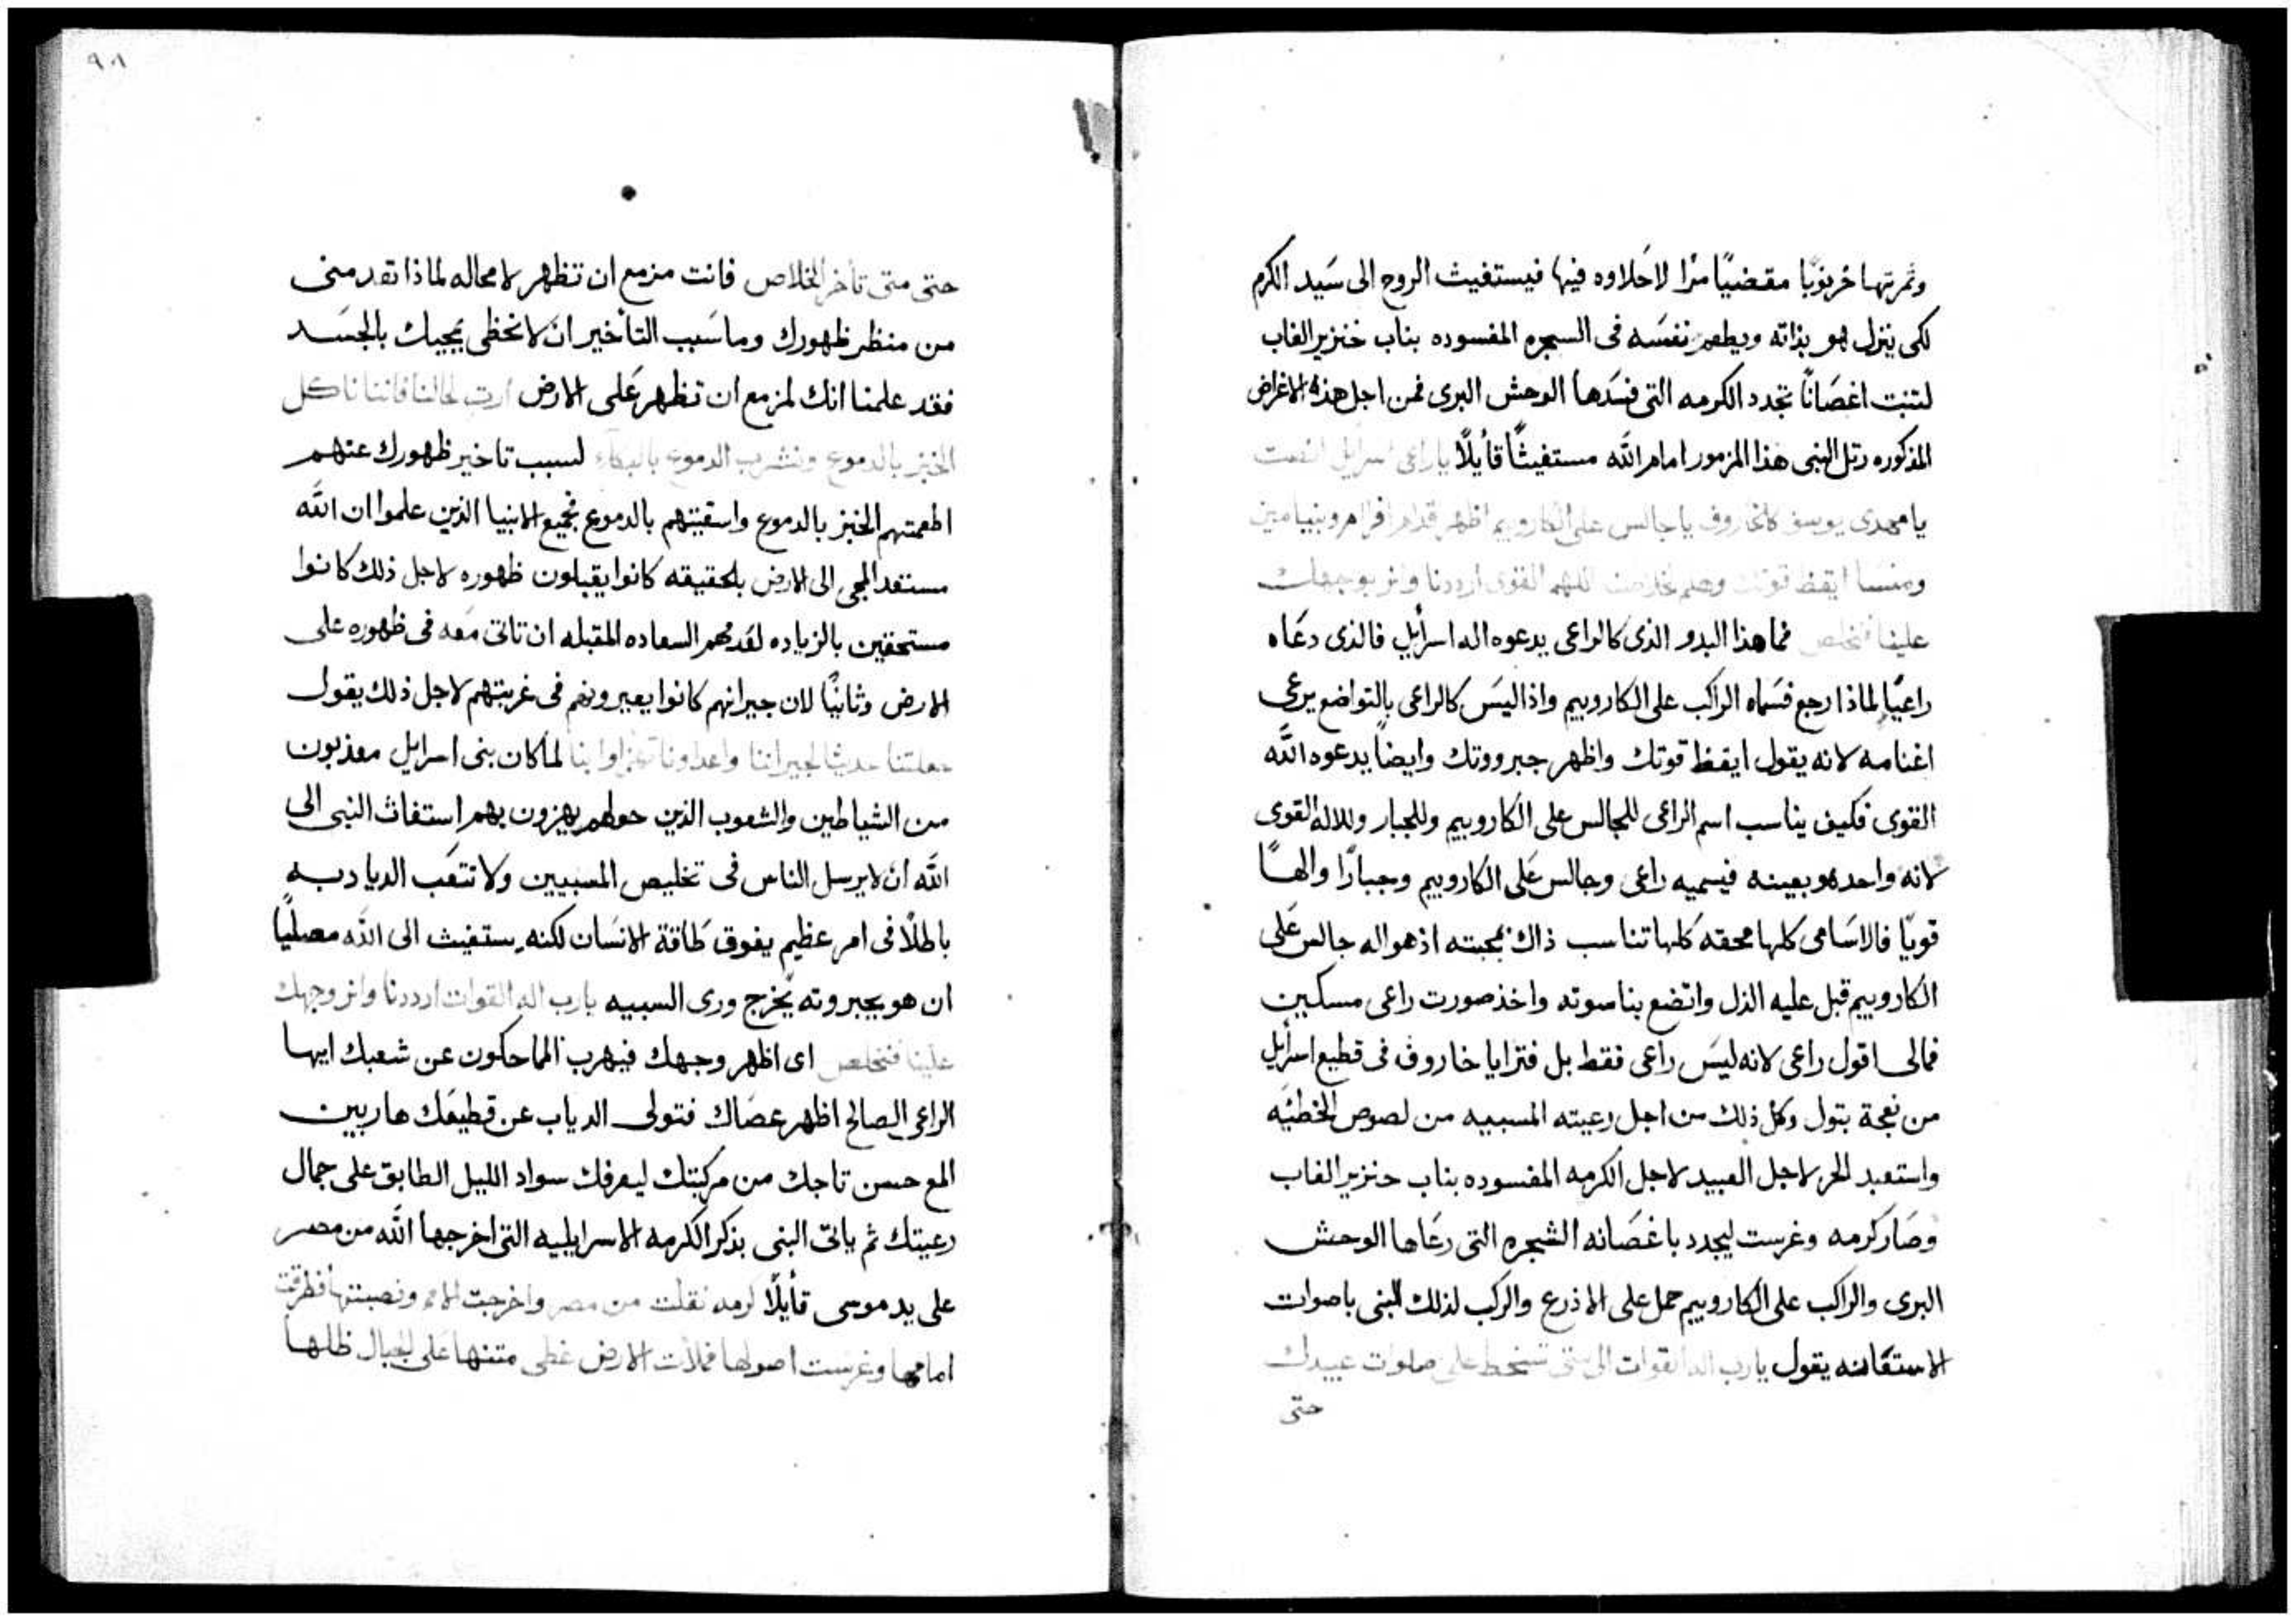 وثمرتها خرنوبًا مقضبًا مرًا لا حَلاوه فيها فيستغيث الروح الى سَيد الكرم
لكى ينزل هو بذاته ويطعم نفسَه فى السجره المفسوده بناب خنزير الغاب
لتنبت اغصَانًا تجدد الكرمه التى فسَدها الوحش البرى فمن اجل هذه الاغراض
المذكوره رتل النبى هذا المزمور امام الله مستغيثًا قأيلًا ياراعى اسرايل انصت
يا مهدى يوسف كالخاروف يا جالس على الكاروبيم اظهر قدام افرام وبنيامين
ومنسا ايقظ قوتك وهلم لخلاصنا اللهم القوى ارددنا وانر بوجهك
علينا فنخلص فما هذا البدو الذى كالراعى يدعوه اله اسرأيل فالذى دعَاه
راعيًا لماذا رجع فسَماه الراكب على الكاروبيم واذا ليسَ كالراعى بالتواضع يرعى
اغنامه لانه يقول ايقظ قوتك واظهر جبرووتك وايضًا يدعوه الله
القوى فكيف يناسب اسم الراعى للجالس على الكاروبيم وللجبار وللاله القوى
لانه واحد هو بعينه فيسميه راعى وجالس عَلى الكاروبيم وجبارًا والهًا
قويًا فالاسَامى كلها محقه كلها تناسب ذاك بمحبته اذ هو اله جالس عَلى
الكاروبيم قبل عليه الذل واتضع بناسوته واخذ صورت راعى مسكين
فمالى اقول راعى لانه ليسَ راعى فقط بل فترايا خاروف فى قطيع اسرأيل
من نعجة بتول وكل ذلك من اجل رعيته المسبيه من لصوص الخطيَه
واستعبد الحر لاجل العبيد لاجل الكرمه المفسوده بناب حنزير الغاب
وصَار كرمه وغرست ليجدد باغصَانه الشجره التى رعَاها الوحش
البرى والراكب على الكاروبيم حمل على الاذرع والركب لذلك النبى باصوات
الاستغاثه يقول يارب اله القوات الى متى تسخط على صلوات عبيدك
حتى
٩٠١
حتى متى تأخر الخلاص فانت مزمع ان تظهر لا محاله لماذا تقدمنى
من منظر ظهورك وما سَبب التأخير ان لا نحظى بمجيك بالجسَد
فقد علمنا انك لمزمع ان تظهر عَلى الارض ارت لحالنا فاننا ناكل
الخبز بالدموع ونشرب الدموع بالبكاء لسبب تاخير ظهورك عنهم
اطعمتهم الخبز بالدموع واسقيتهم بالدموع نجميع الانبيا الذين علموا ان الله
مستعد المجى الى الارض بالحقيقه كانوا يقبلون ظهوره لاجل ذلك كانوا
مستحقين بالزياده لقدمهم السعاده المقبله ان تاتى مَعه فى ظهوره على
الارض وثانيًا لان جيرانهم كانوا يعيرونهم فى غربتهم لاجل ذلك يقول
جعلتنا حديثًا لجيراننا واعداونا تهزاوا بنا لما كان بنى اسرايل معذبون
من الشياطين والشعوب الذين حولهم يهزون بهم استغاث النبى الى
الله ان لا يرسل الناس فى تخليص المسبيين ولا تتعَب الديادبه
باطلًا فى امر عظيم يفوق طَاقة الانسَان لكنه يستغيث الى الله مصليًا
ان هو بجبروته يخرج ورى السبيه يارب اله القوات ارددنا وانر وجهك
علينا فنخلص اى اظهر وجهك فيهرب الماحكون عن شعبك ايها
الراعى الصالح اظهر عصَاك فتولى الدياب عن قطيعَك هاربين
المع حسن تاجك من مركبتك ليعرفك سواد الليل الطابق على جمال
رعيتك ثم ياتى النبى بذكر الكرمه الاسرايليه التى اخرجها الله من مصر
على يد موسى قأيلًا كرمه نقلت من مصر واخرجت الامم ونصبتها فطرقت
امامها وغرست اصولها فملأت الارض غطى متنها عَلى الجبال ظلها